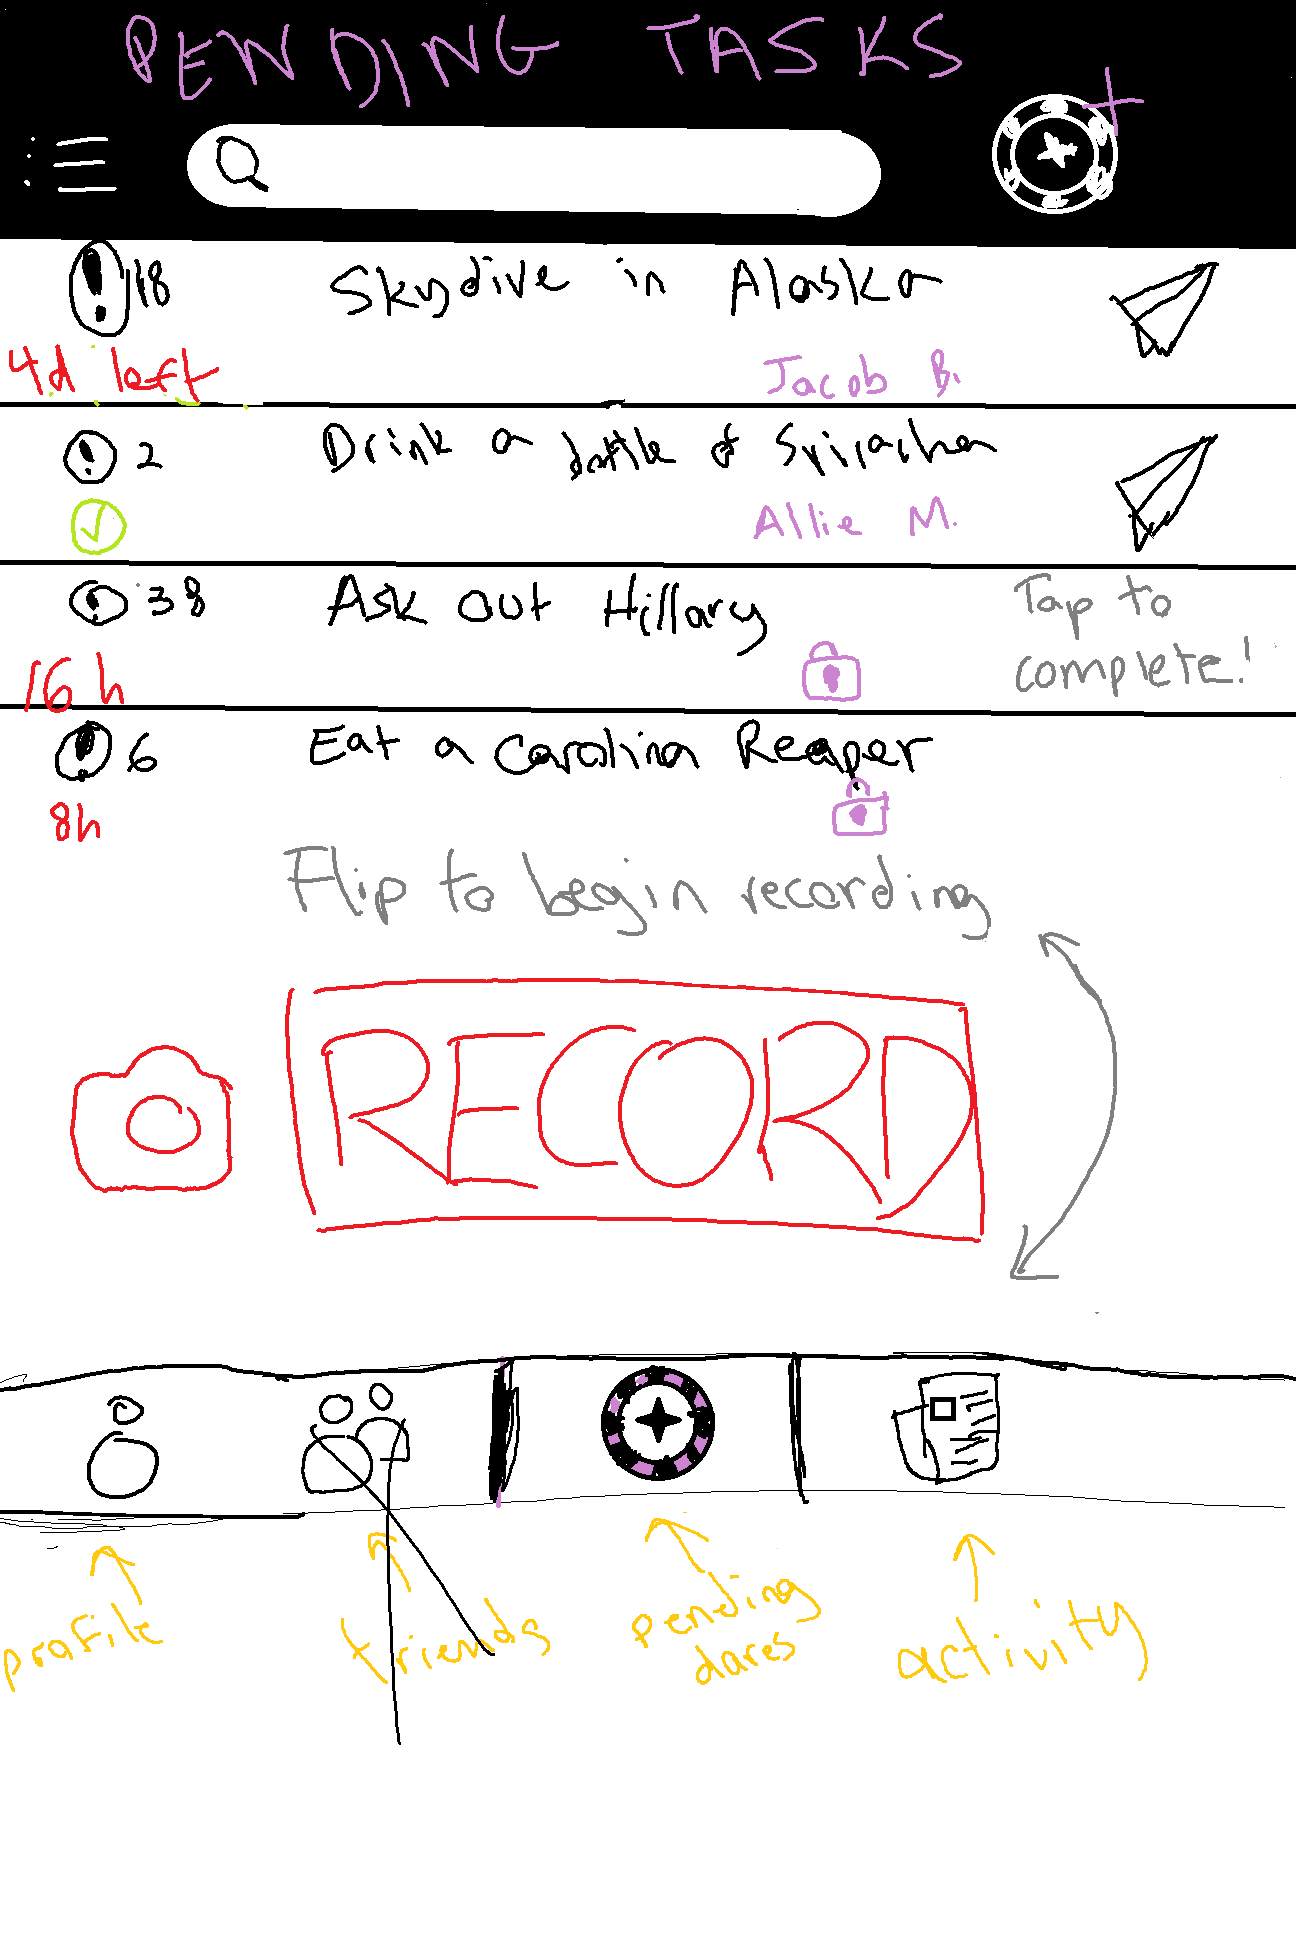 PENDING TASKS
18 Skydive in Alaska
4d left Jacob B.
2 Drink a bottle of Sriracha
Allie M.
38 Ask out Hillary
Tap to
complete!
16 h
6 Eat a Carolina Reaper
8h
Flip to begin recording
RECORD
profile friends pending dares activity